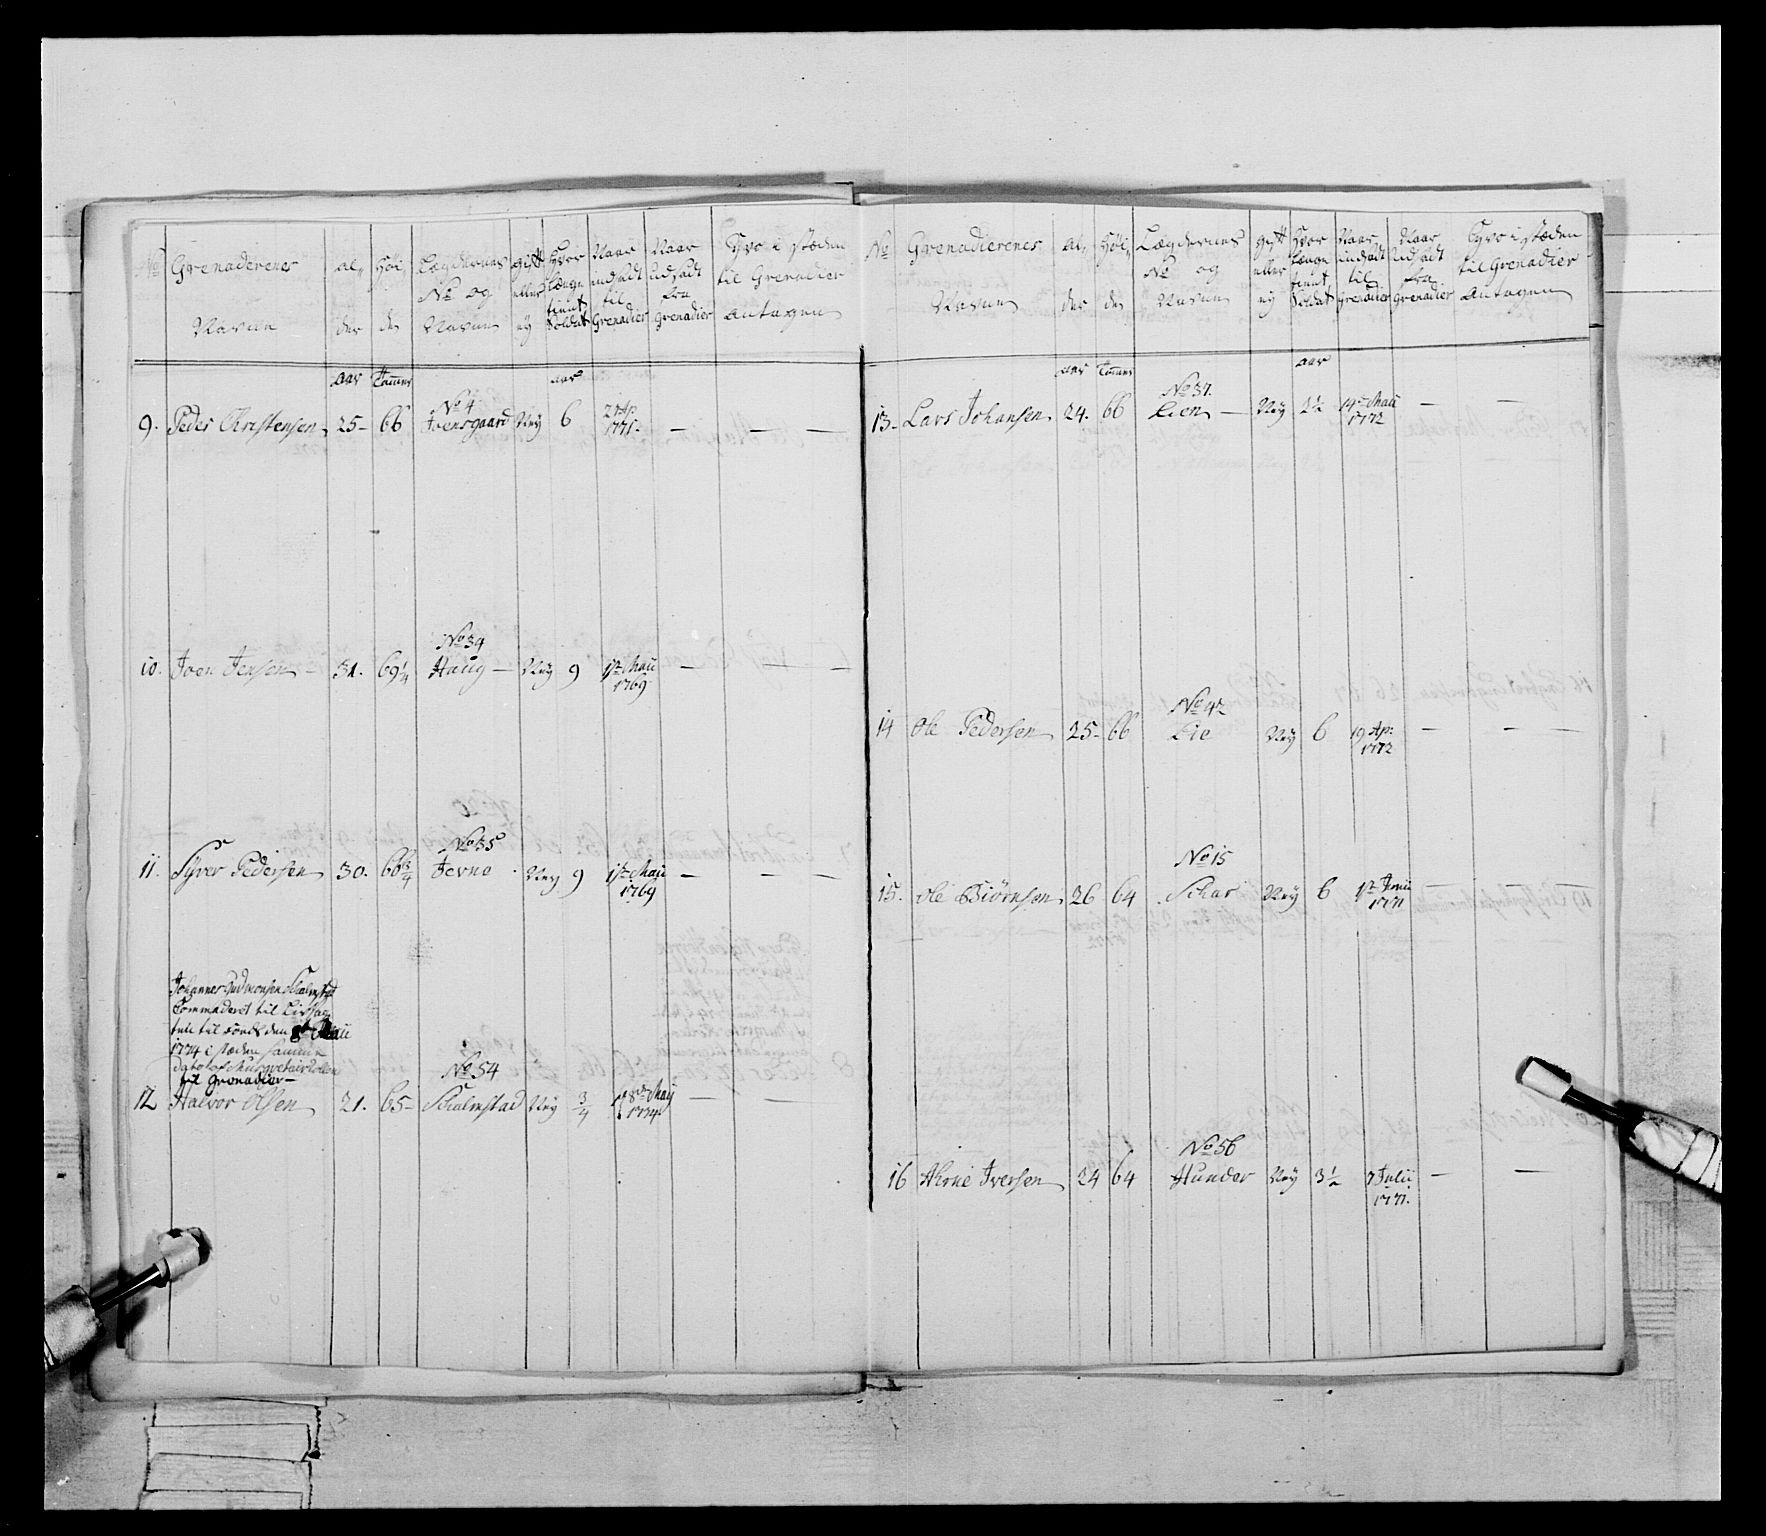 No Grenaderenes Navne
Al, der
Höi, de
Lægdernes No og Navne
gift eller ey
Hvor længe tient Soldat
Naar indsadt til Grenadier
Naar udsadt fra Grenadier
Hvo i stæden til Grenadier Antagen
aar Tommer aar
9. Peder Christensen 25- 66 No 4 Joensgaard Ney 6 21 Ap. 1771. — — —
10. Joen Jensen — 31. 69 1/4 No 34 Haug — Ney 9 1te Maii 1769 — — —
11. Syver Pedersen 30. 66 3/4 No 35 Jevne Ney 9 1te Maii 1769 — — —
Johannes Gudmonsen Schalmstad
Commaderet til Livvag
ten til den 8te Maii
1774 i stæden samme
Dato af Musqvetair
til Grenadier —
12 Halvor Olsen 21. 65- No 54 Schalmstad Ney 3/4 8de Maij 1774 — —
No Grenadierenes Navne
Al, der
Höi, de
Lægdernes No og Navne
gift eller ey
Hvor længe tient Soldat
Naar indsadt til Grenadier
Naar udsadt fra Grenadier
Hvo i stæden til Grenadier Antagen
aar Tommer aar
13- Lars Johansen 24. 66 No 37. Lien — Ney 2 1/2 14de Maii 1772 — —
14 Ole Pedersen 25- 66 No 42 Lie Ney 6 19 Ap: 1772 — — —
15. Ole Biörnsen 26 64 No 15 Schar Ney 6 1te Junii 1771 — — —
16 Hirne Iversen 24 64 No 56 Hunder Ney 3 1/2 7 Julii 1771. — —